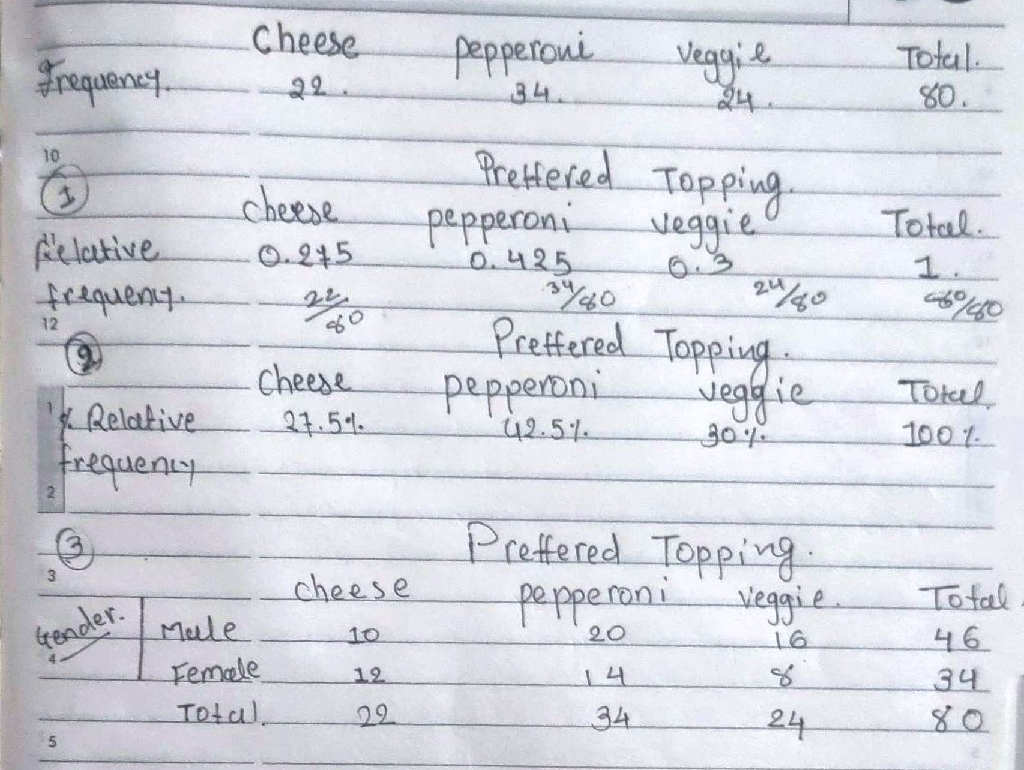 Cheese pepperoni veggie Total.
Frequency. 22. 34. 24. 80.
10
1 Preffered Topping.
cheese pepperoni veggie Total.
Relative 0.275 0.425 0.3 1.
frequency. 22/80 34/80 24/80 80/80
12
2 Preffered Topping.
Cheese pepperoni veggie Total.
1 % Relative 27.5%. 42.5%. 30%. 100%
frequency
2
3 Preffered Topping.
3
cheese pepperoni veggie. Total.
Gender. Male 10 20 16 46
4
Female 12 14 8 34
Total. 22 34 24 80
5